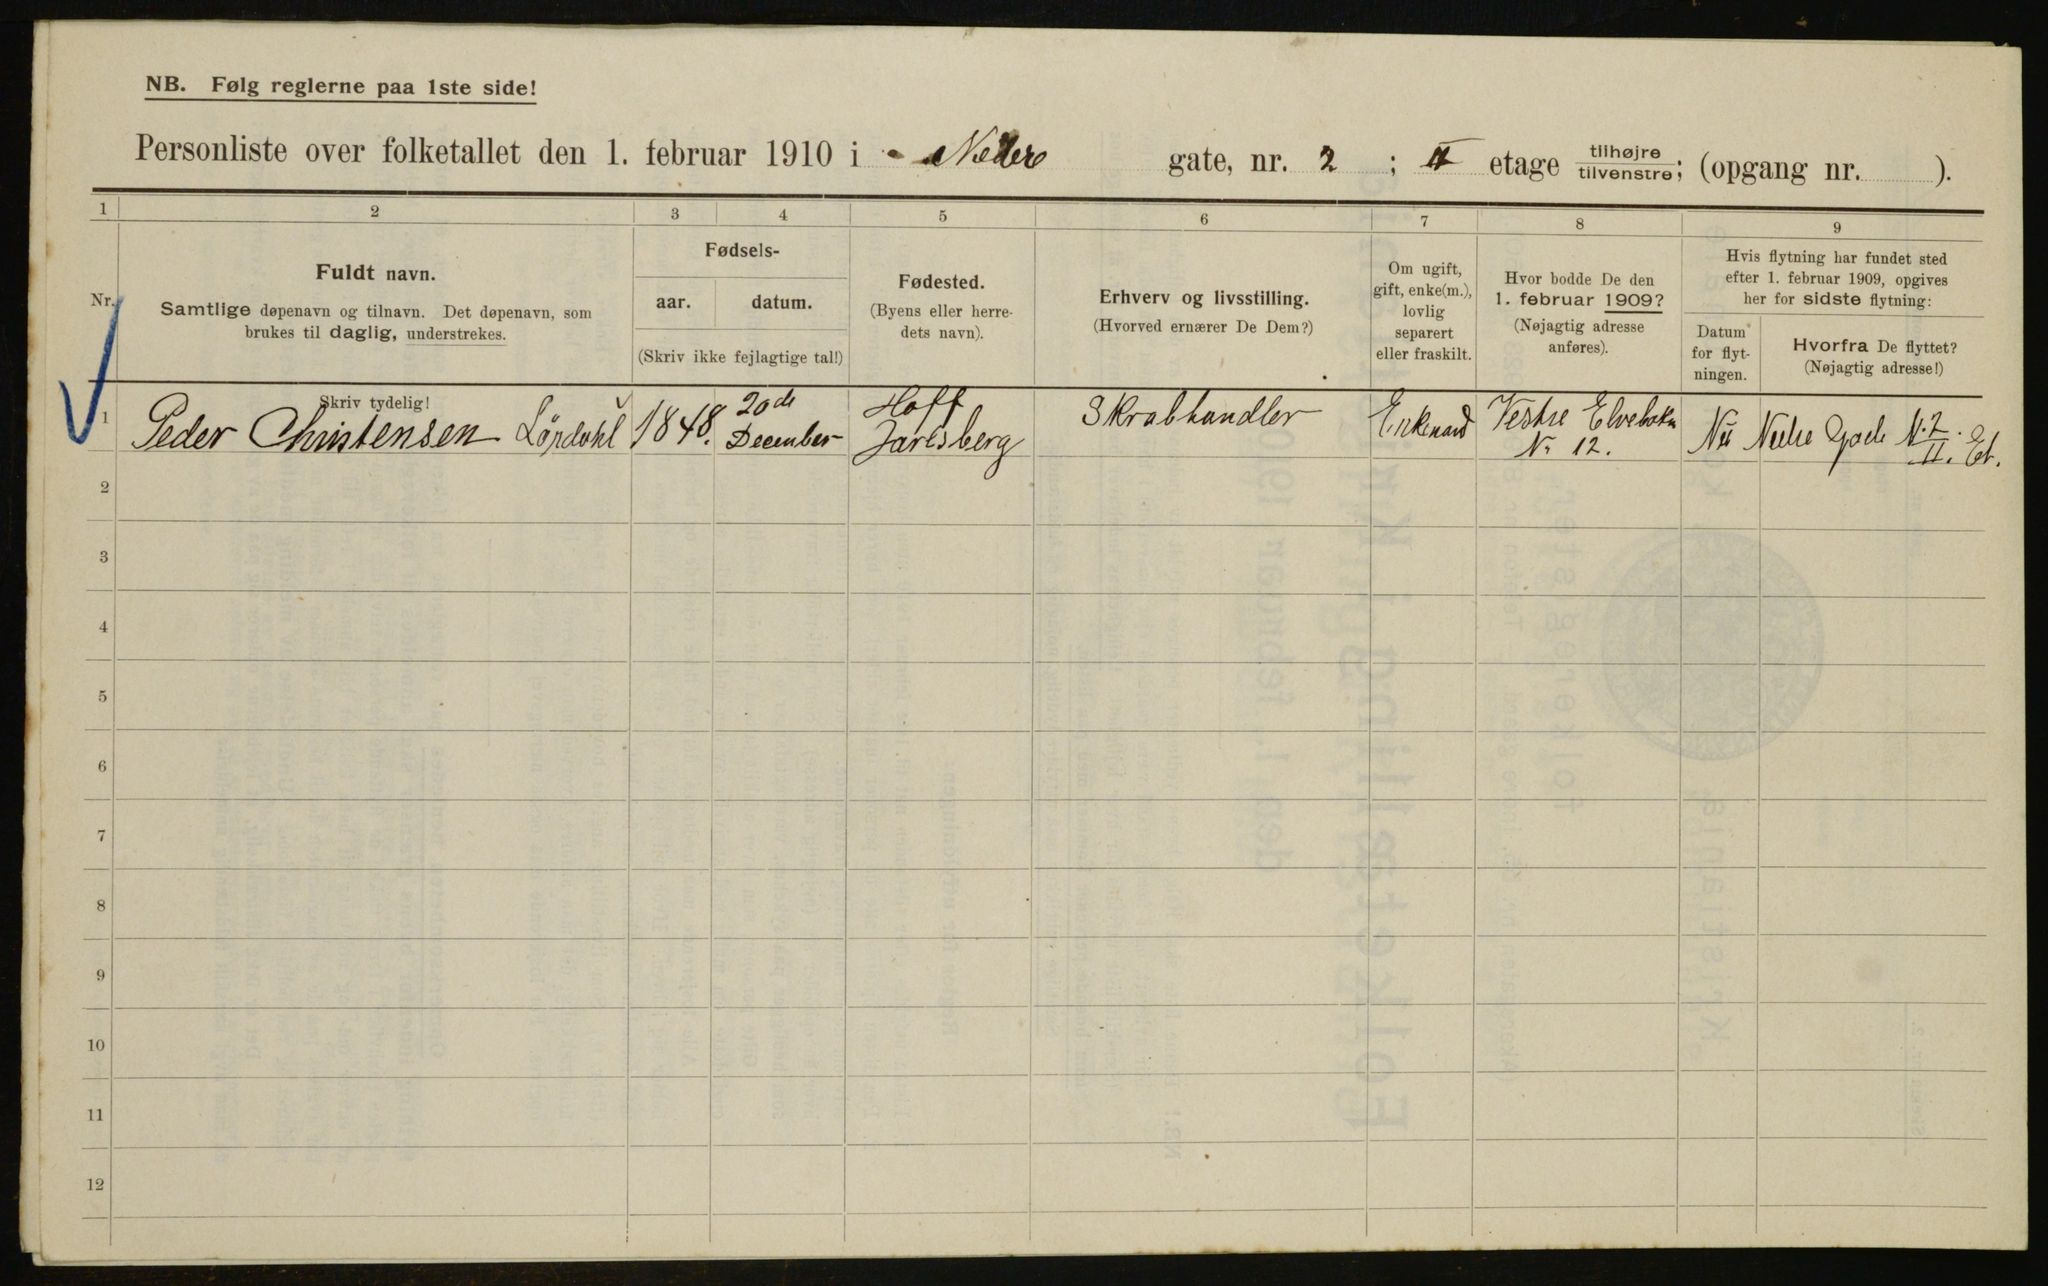 NB. Følg reglerne paa 1ste side!
Personliste over folketallet den 1. februar 1910 i Nedre gate, nr. 2 ; II etage tilhøjre/tilvenstre; (opgang nr. ).
1 2 3 4 5 6 7 8 9
Nr.
Fuldt navn.
Samtlige døpenavn og tilnavn. Det døpenavn, som
brukes til daglig, understrekes.
Skriv tydelig!
Fødsels-
aar. datum.
(Skriv ikke fejlagtige tal!)
Fødested.
(Byens eller herre-
dets navn).
Erhverv og livsstilling.
(Hvorved ernærer De Dem?)
Om ugift,
gift, enke(m.),
lovlig
separert
eller fraskilt.
Hvor bodde De den
1. februar 1909?
(Nøjagtig adresse
anføres).
Hvis flytning har fundet sted
efter 1. februar 1909, opgives
her for sidste flytning:
Datum
for flyt-
ningen.
Hvorfra De flyttet?
(Nøjagtig adresse!)
1 Peder Christensen 1848. 20de December Hoff Jarlsberg Skrabhandler Enkemand Vestre Elvebakn
No 12. Nu Nedre Gade N. 2
II. Et.
2
3
4
5
6
7
8
9
10
11
12